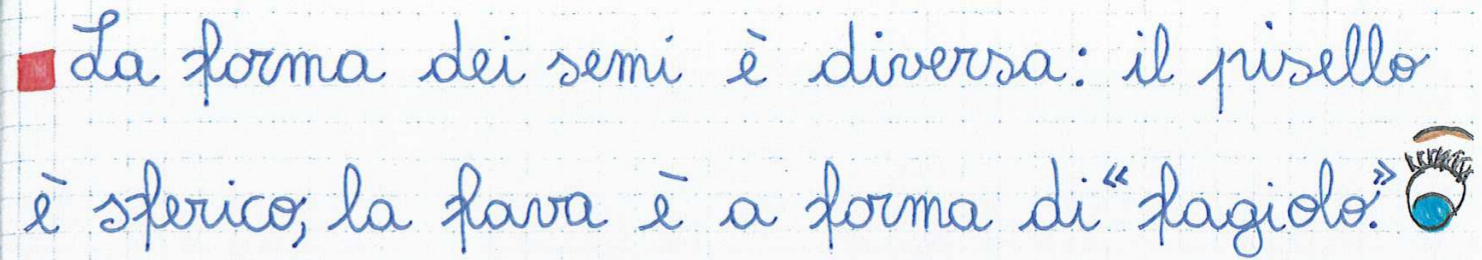 La forma dei semi è diversa: il pisello
è sferico, la fava è a forma di "fagiolo".